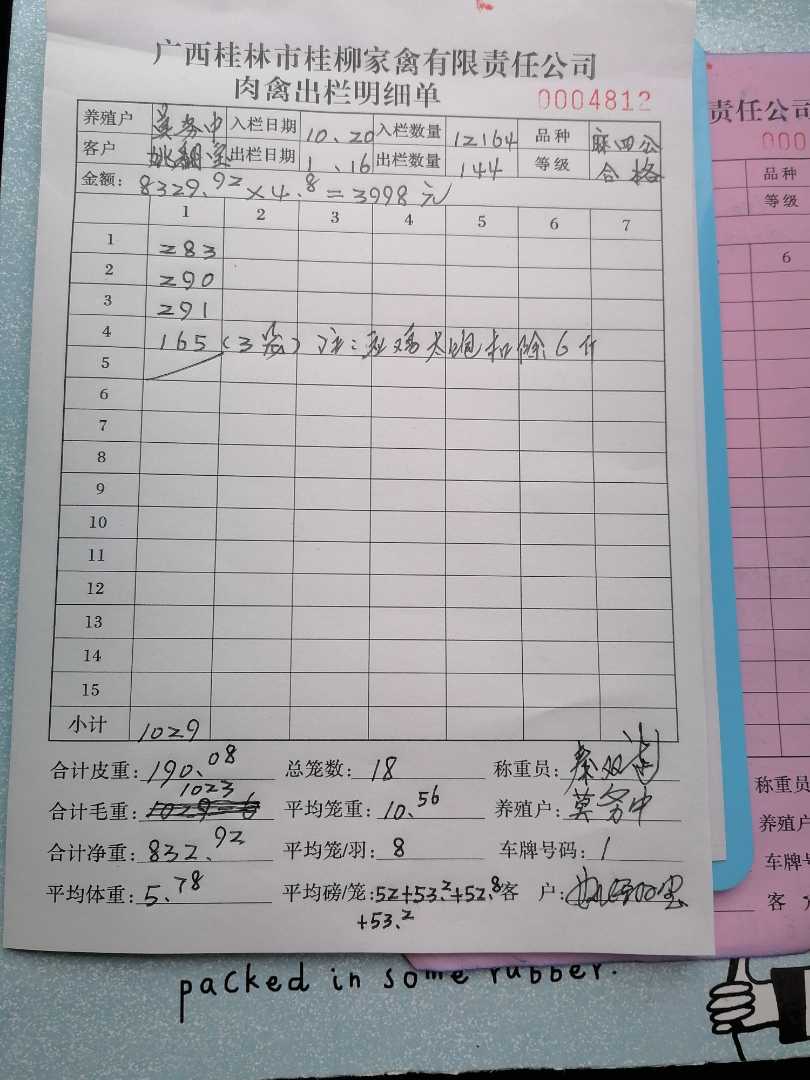 广西桂林市桂柳家禽有限责任公司
肉禽出栏明细单 0004812
养殖户 莫务中 入栏日期 10、20 入栏数量 12164 品种 麻四公
客户 出栏日期 1、16 出栏数量 144 等级 合格
金额: 8329.92 × 4.8 = 3998元
1 2 3 4 5 6 7
1 283
2 290
3 291
4 165 (3笼) 注: 鸡太饱扣除6斤
5
6
7
8
9
10
11
12
13
14
15
小计 1029
合计皮重: 190.08 总笼数: 18 称重员:
合计毛重: 1023 平均笼重: 10.56 养殖户: 莫务中
合计净重: 832.92 平均笼/羽: 8 车牌号码: /
平均体重: 5.78 平均磅/笼: 52+53.2+52.8 客 户:
+53.2
packed in some rubber.
责任公司
000
品种
等级
6
称重员
养殖户
车牌
客